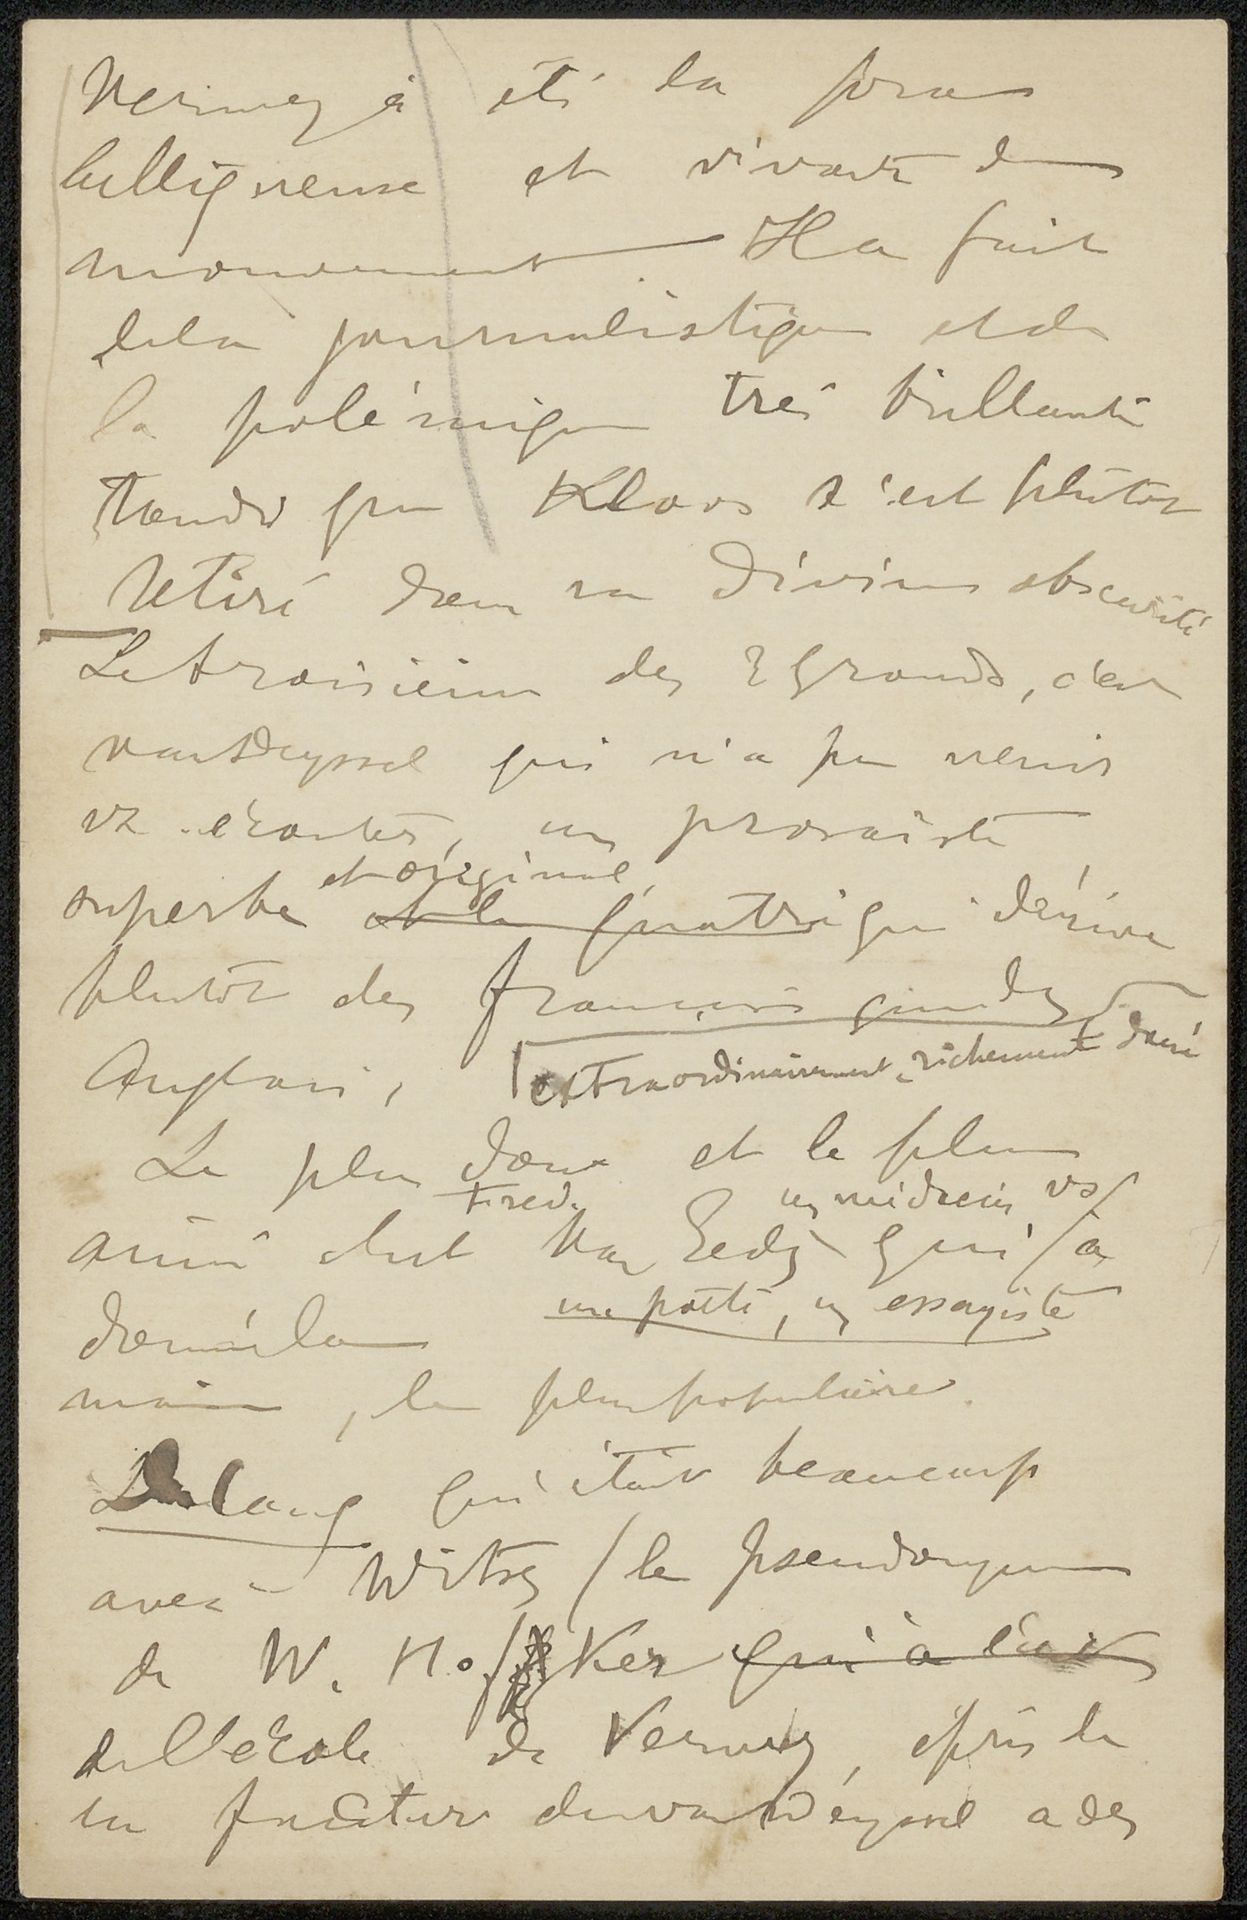 Verwey a été la force
belligneuse et vivante du
mouvement Il a fait
de la journalistique et de
la polémique très brillante
tandis que Kloos s'est plutôt
retiré dans sa divine obscurité
Le troisième des 3 grands, c'est
van Deyssel qui n'a pu venir
un prosaiste
et original,
superbe et le quatri qui dérive
plutôt des français que des
Anglais, extraordinairement richement doué
Le plus doux et le plus
Fred. un médecin
aimé c'est Van Eeden qui a
un poète, un essayiste
dans la
main, le plus populaire.
De lang qui était beaucoup
avec Witsen / le pseudonyme
de W. Ho ker qui a écrit
de l'école de Verwey, après la
la facture de van Deyssel a des